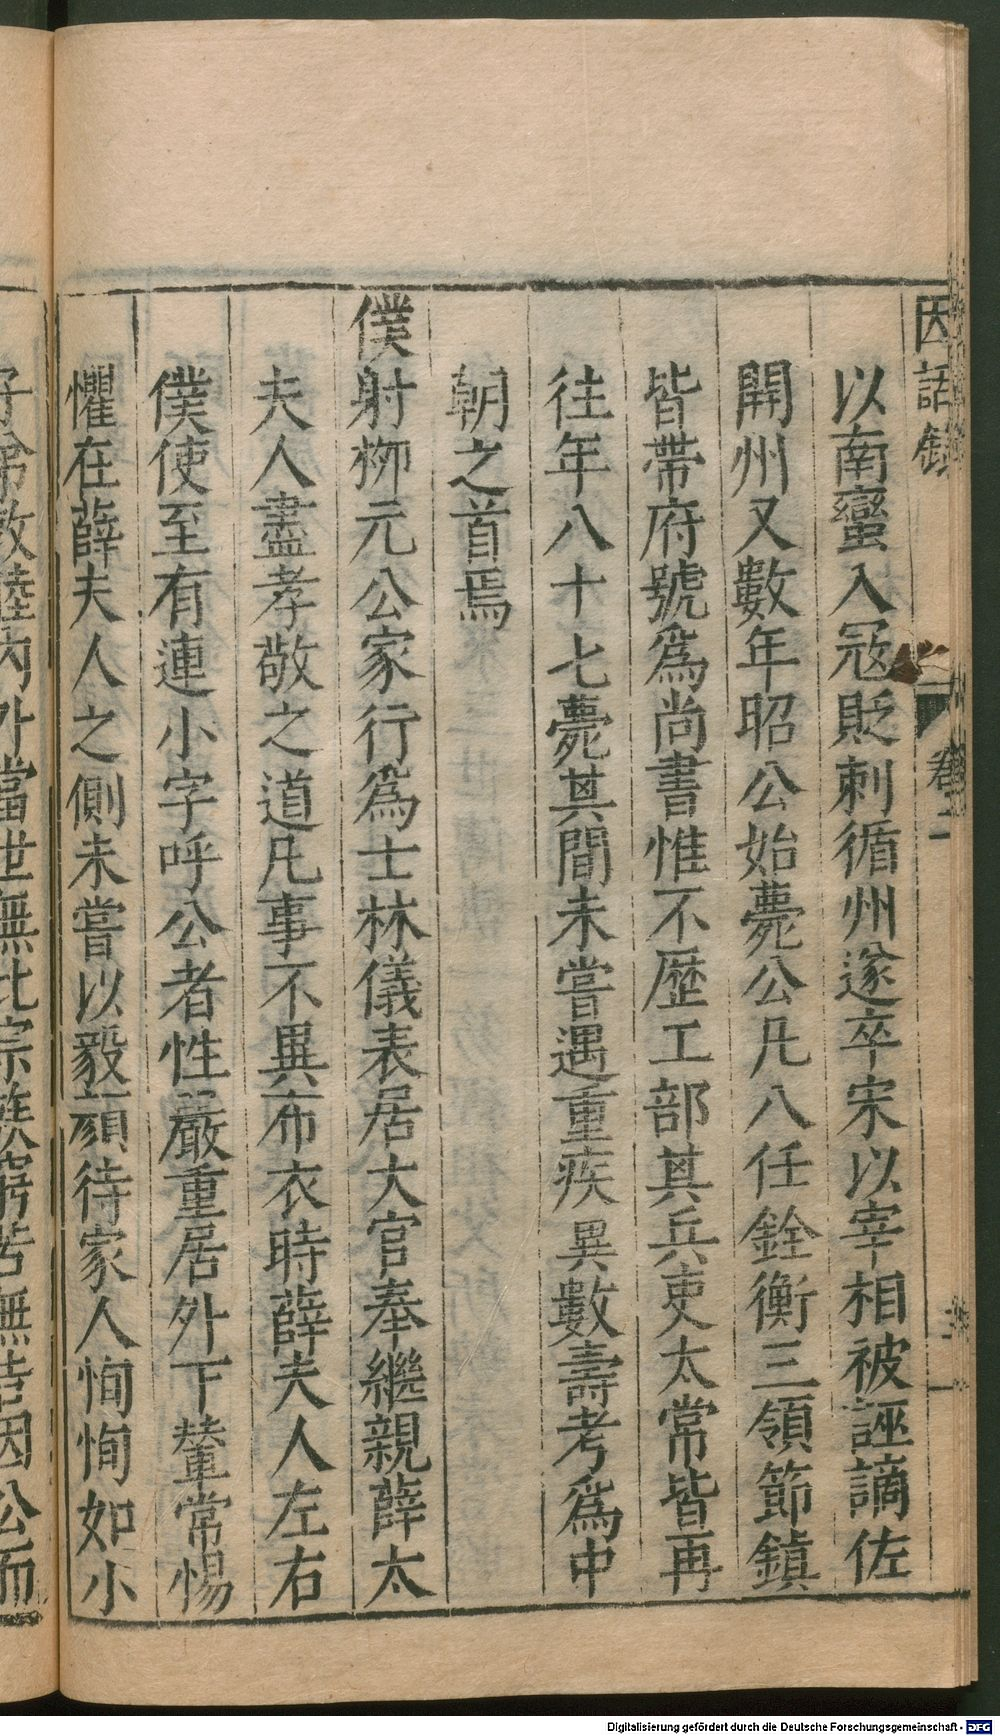 因話録
卷二
以南蠻入冦貶刺循州遂卒宋以宰相被誣謫佐
開州又數年昭公始薨公凡八任銓衡三領節鎮
皆帶府號爲尚書惟不歷工部其兵吏太常皆再
往年八十七薨其間未嘗遇重疾異數壽考爲中
朝之首焉
僕射栁元公家行爲士林儀表居大官奉繼親薛太
夫人盡孝敬之道凡事不異布衣時薛夫人左右
僕使至有連小字呼公者性嚴重居外下輦常惕
懼在薛夫人之側未嘗以毅顔待家人恂恂如小
子常敦睦內外當世無比宗族窮苦無告因公而
Digitalisierung gefördert durch die Deutsche Forschungsgemeinschaft - DFG